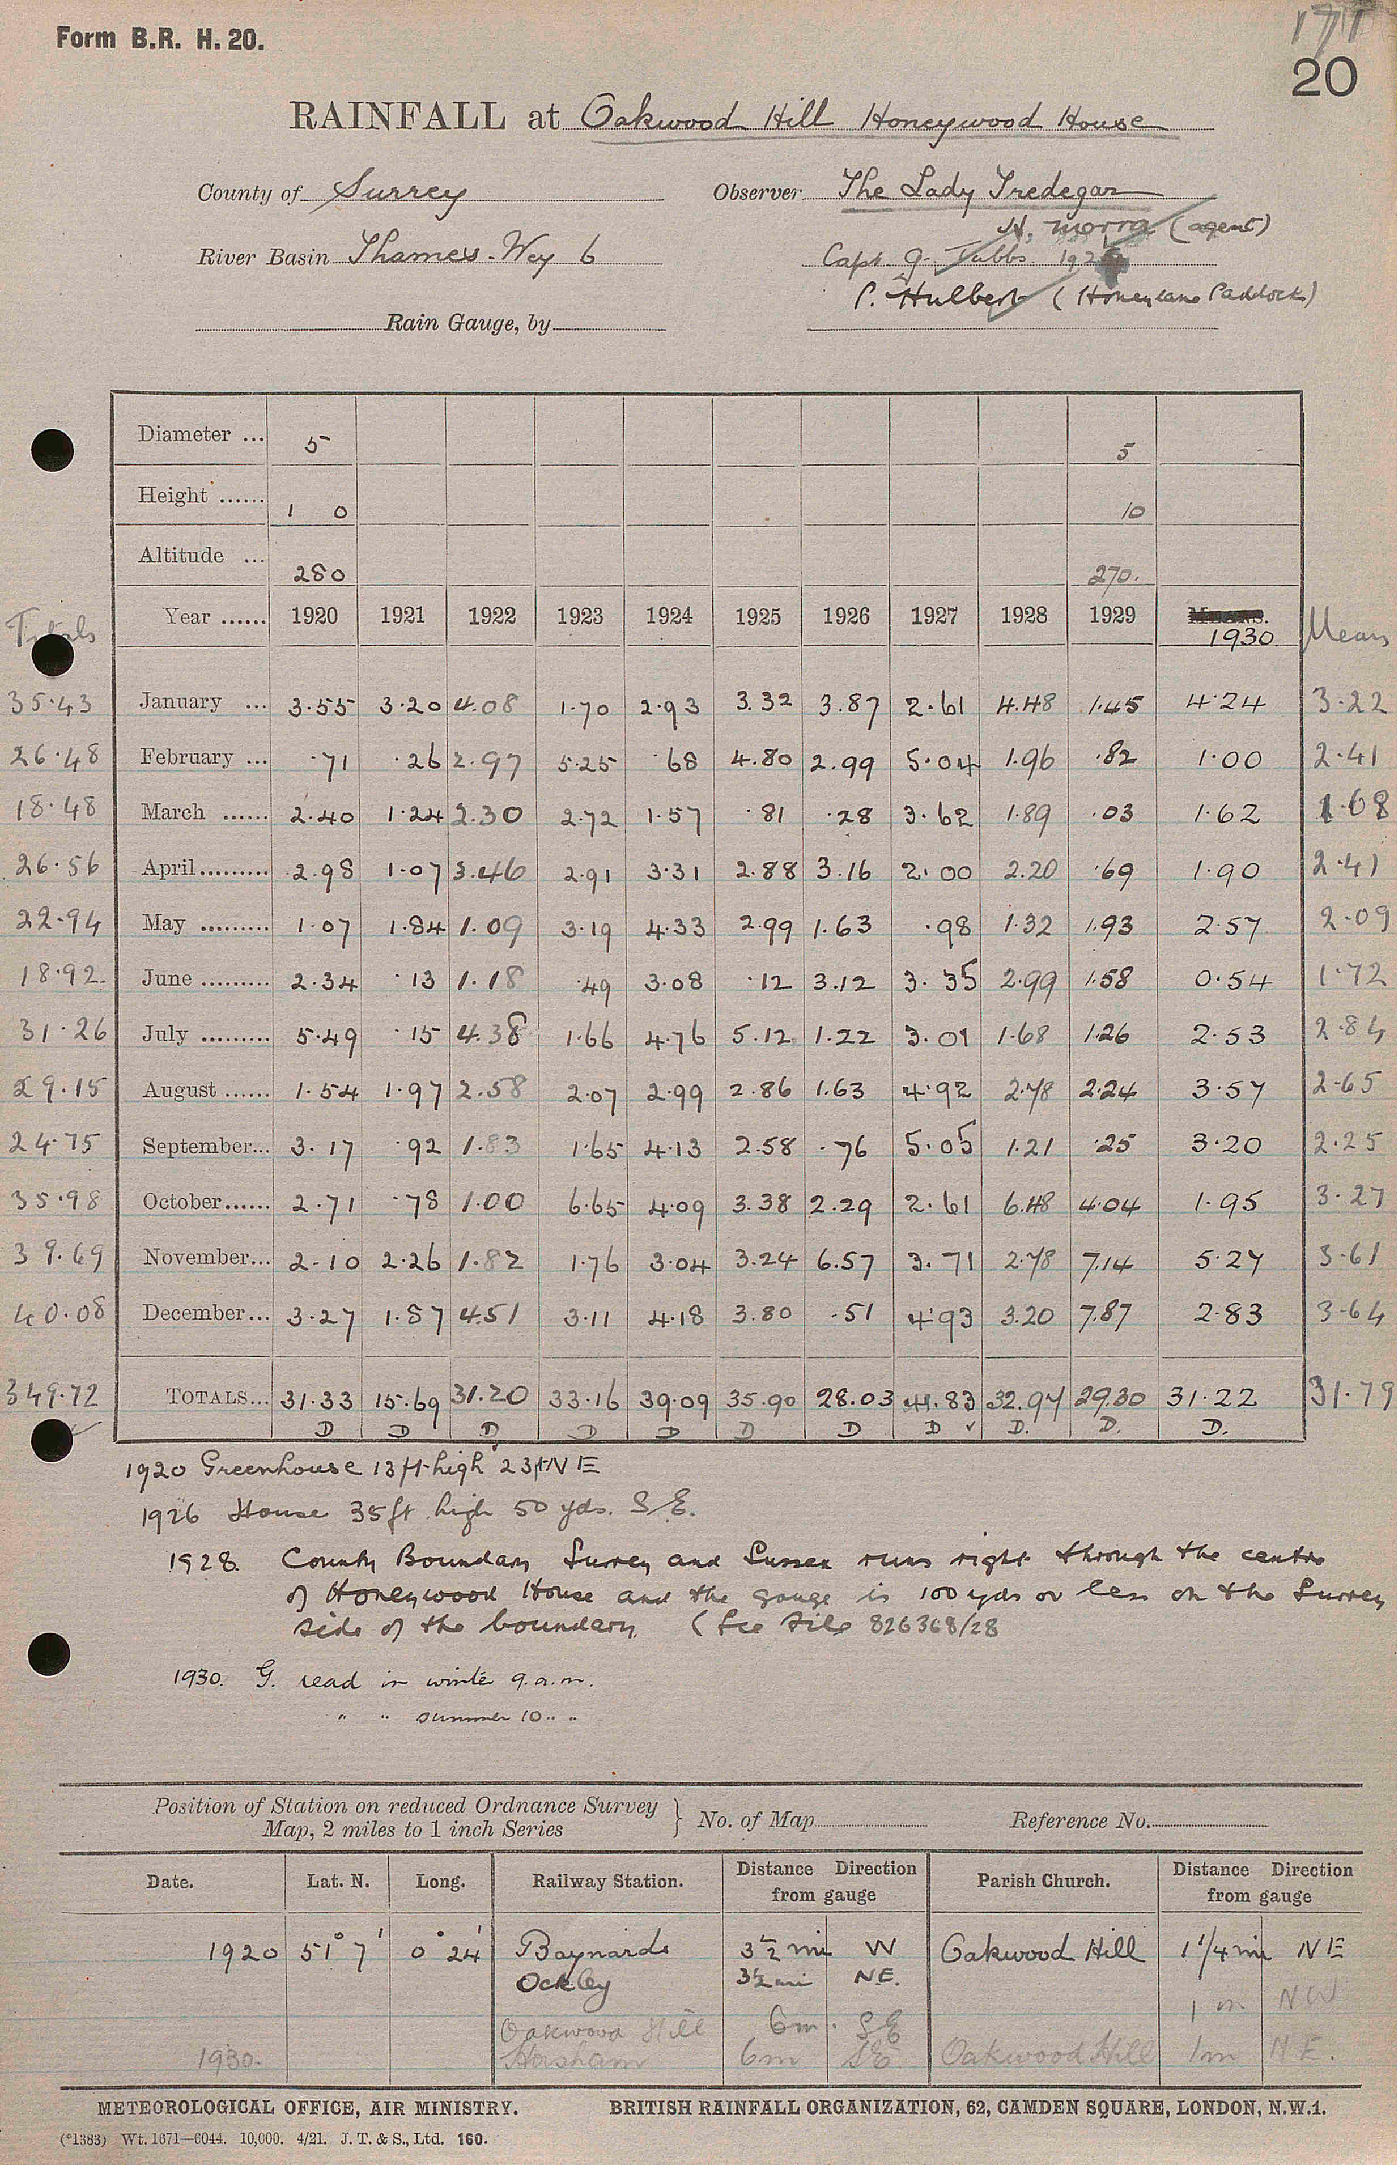 Form B.R. H. 20.
171
20
RAINFALL at Oakwood Hill Honeywood House
County of Surrey Observer The Lady Tredegar
H. Morra (agent)
River Basin Thames-Wey 6 Capt G. Tubbs 192
P. Hulbert (Honeylane Paddock)
Rain Gauge, by
Diameter ... 5 5
Height ...... 1 0 10
Altitude ... 280 270.
Totals Year ...... 1920 1921 1922 1923 1924 1925 1926 1927 1928 1929 1930 Mean
35.43 January ... 3.55 3.20 4.08 1.70 2.93 3.32 3.87 2.61 4.48 1.45 4.24 3.22
26.48 February ... .71 .26 2.97 5.25 .68 4.80 2.99 5.04 1.96 .82 1.00 2.41
18.48 March ...... 2.40 1.24 2.30 2.72 1.57 .81 .28 3.62 1.89 .03 1.62 1.68
26.56 April ......... 2.98 1.07 3.46 2.91 3.31 2.88 3.16 2.00 2.20 .69 1.90 2.41
22.94 May ......... 1.07 1.84 1.09 3.19 4.33 2.99 1.63 .98 1.32 1.93 2.57 2.09
18.92 June ......... 2.34 .13 1.18 .49 3.08 .12 3.12 3.35 2.99 1.58 0.54 1.72
31.26 July ......... 5.49 .15 4.38 1.66 4.76 5.12 1.22 3.01 1.68 1.26 2.53 2.84
29.15 August ...... 1.54 1.97 2.58 2.07 2.99 2.86 1.63 4.92 2.78 2.24 3.57 2.65
24.75 September... 3.17 .92 1.83 1.65 4.13 2.58 .76 5.05 1.21 .25 3.20 2.25
35.98 October...... 2.71 .78 1.00 6.65 4.09 3.38 2.29 2.61 6.48 4.04 1.95 3.27
39.69 November... 2.10 2.26 1.82 1.76 3.04 3.24 6.57 3.71 2.78 7.14 5.27 3.61
40.08 December... 3.27 1.87 4.51 3.11 4.18 3.80 .51 4.93 3.20 7.87 2.83 3.64
349.72 TOTALS... 31.33 15.69 31.20 33.16 39.09 35.90 28.03 41.83 32.97 29.30 31.22 31.79
D D D D D D D D ✓ D. D. D.
1920 Greenhouse 13 ft high 23 ft NE
1926 House 35 ft high 50 yds. SE.
1928. County Boundary Surrey and Sussex runs right through the centre
of Honeywood House and the gauge is 100 yds or less on the Surrey
side of the boundary. (See File 826368/28
1930. G. read in winter 9. a.m.
" " summer 10 " "
Position of Station on reduced Ordnance Survey
Map, 2 miles to 1 inch Series } No. of Map Reference No.
Date. Lat. N. Long. Railway Station. Distance Direction from gauge Parish Church. Distance Direction from gauge
1920 51° 7' 0° 24' Baynards 3½ mi W Oakwood Hill 1 1/4 mi NE
Ockley 3½ mi NE.
1 m NW
Oakwood Hill 6m. SE
1930. Horsham 6m SE Oakwood Hill 1m N E.
METEOROLOGICAL OFFICE, AIR MINISTRY. BRITISH RAINFALL ORGANIZATION, 62, CAMDEN SQUARE, LONDON, N.W.1.
(*1383) Wt. 1671—6044. 10,000. 4/21. J. T. & S., Ltd. 160.